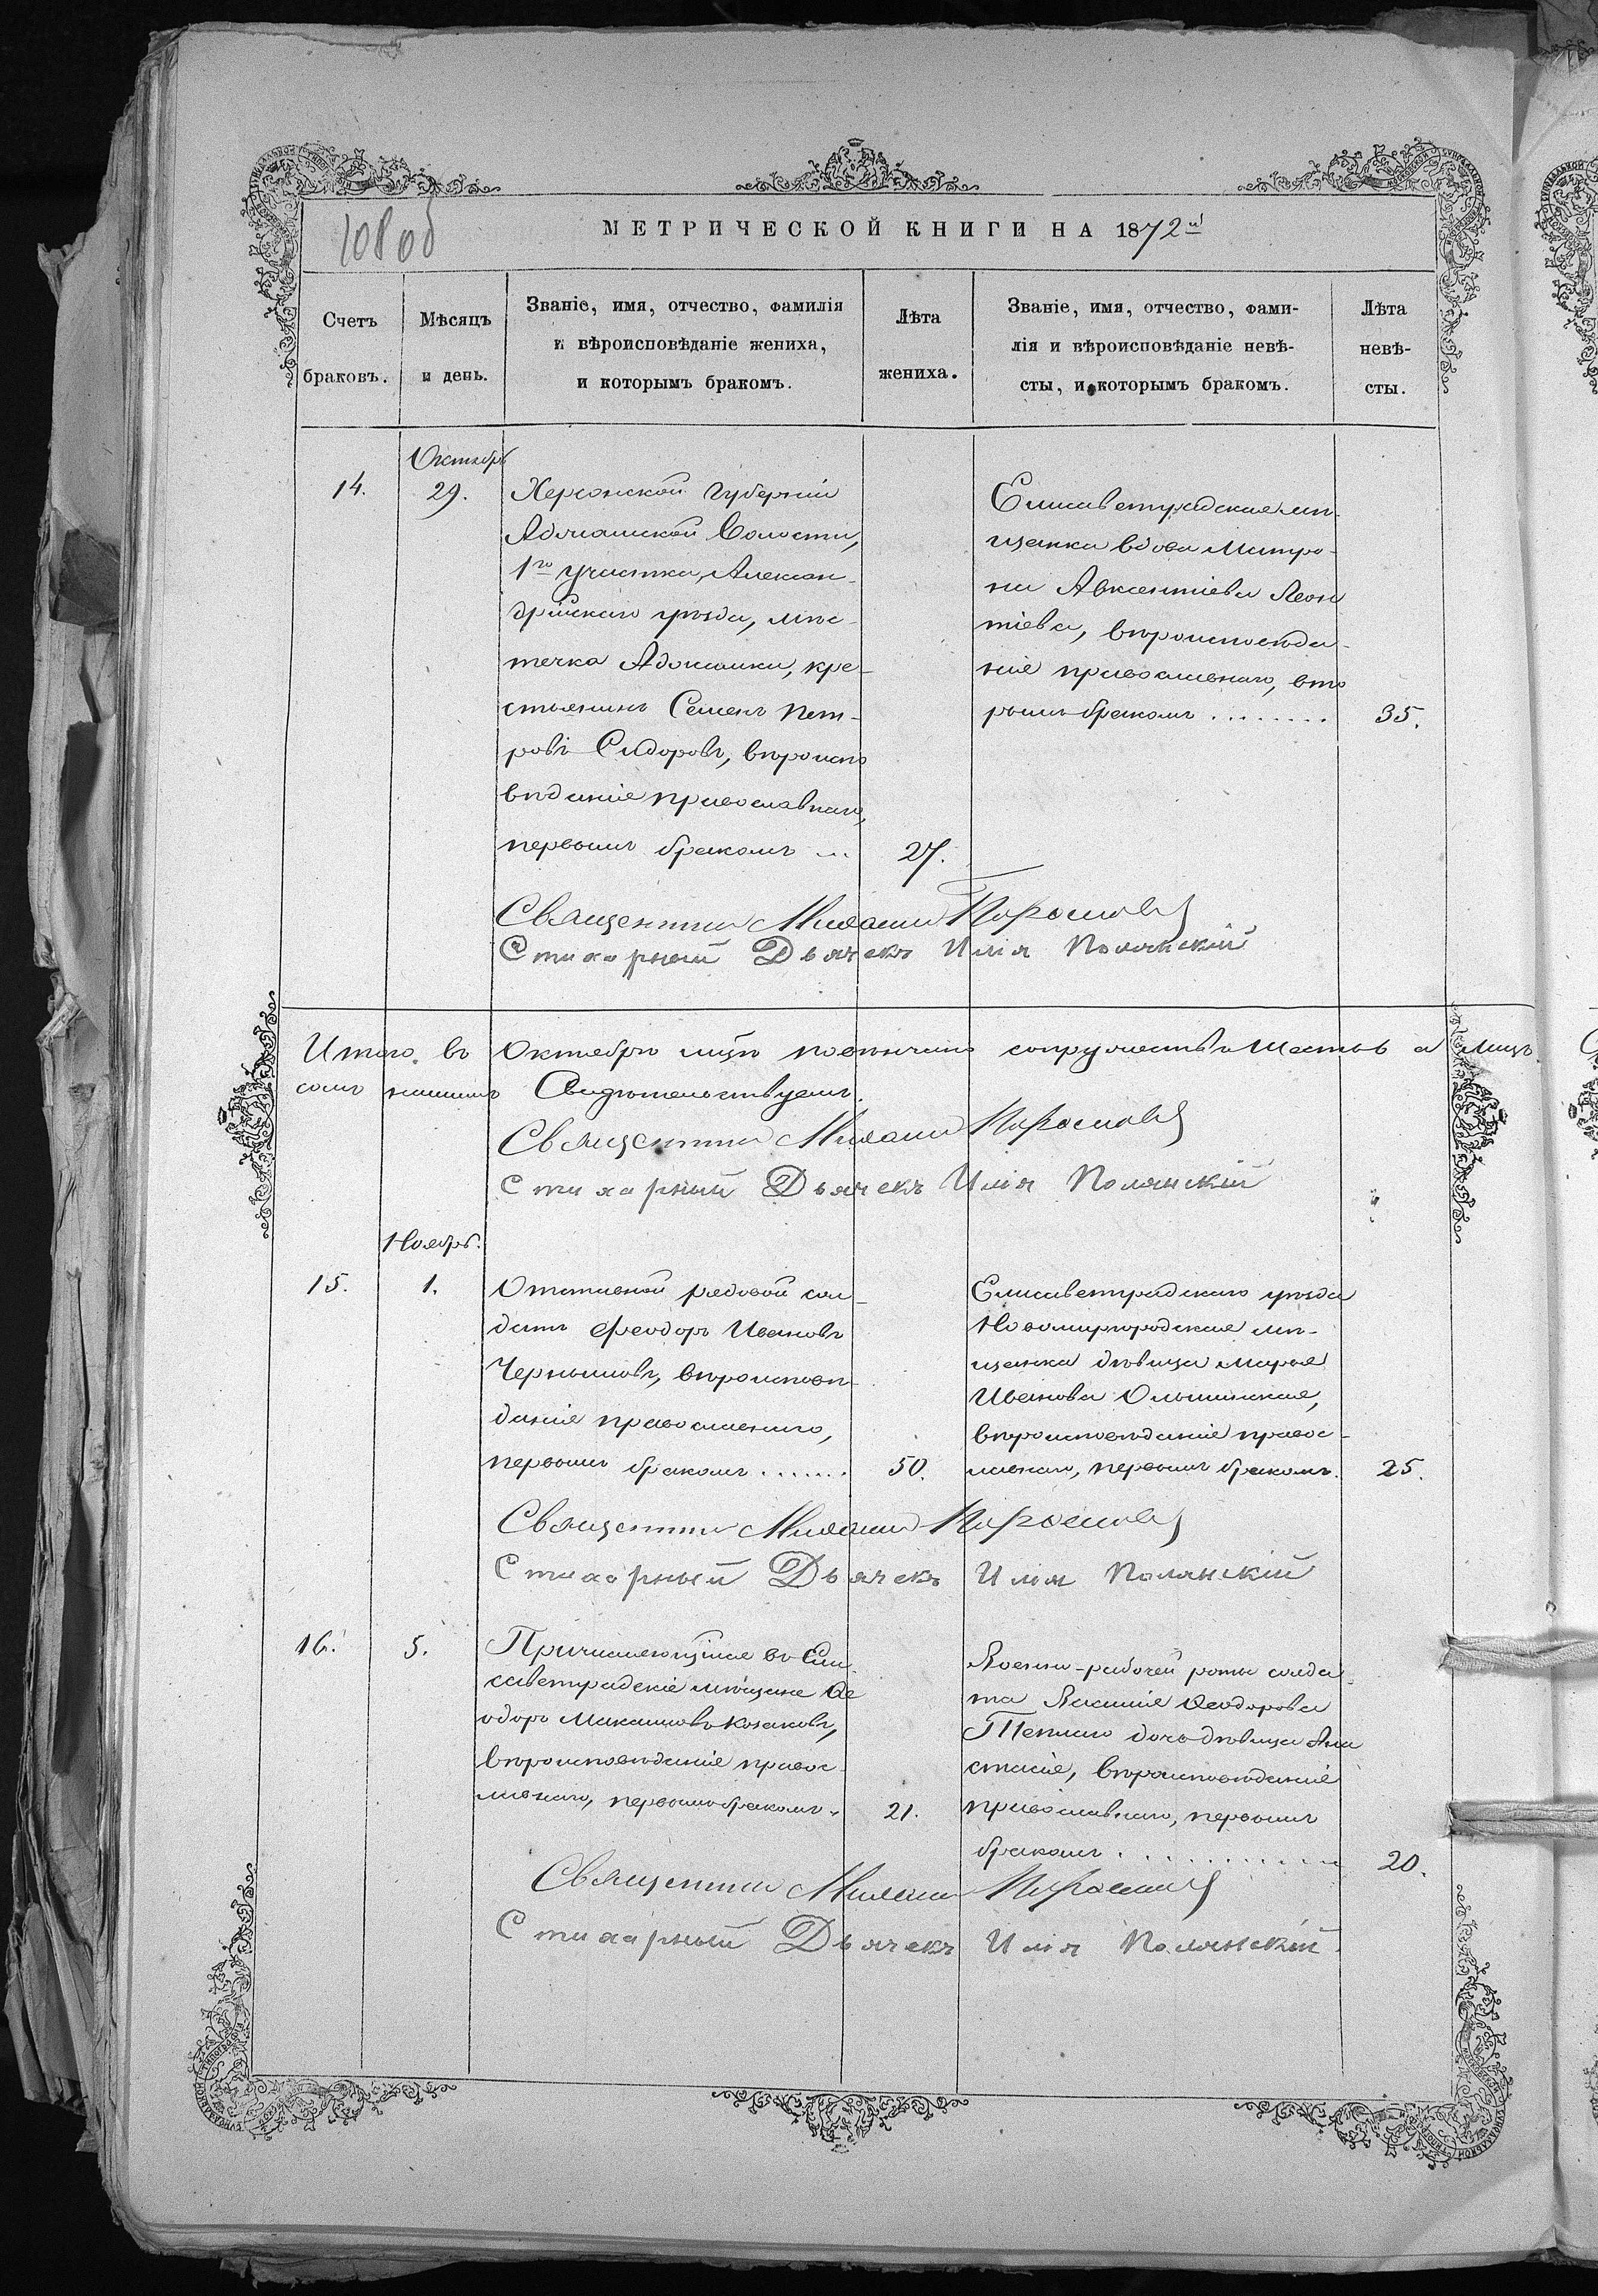 108 об
МЕТРИЧЕСКОЙ КНИГИ НА 1872й
Счетъ браковъ.
Мѣсяцъ и день.
Званіе, имя, отчество, фамилія
и вѣроисповѣданіе жениха,
и которымъ бракомъ.
Лѣта
жениха.
Званіе, имя, отчество, фами-
лія и вѣроисповѣданіе невѣ-
сты, и которымъ бракомъ.
Лѣта
невѣ-
сты.
Октябрь
14.
29.
Херсонской Губерніи
Аджамской Волости,
1го участка, Алексан-
дрійскаго уѣзда, мѣс-
течка Аджамки, кре-
стьянинъ Семенъ Пет-
ровъ Сидоровъ, вѣроиспо
вѣданіе православнаго,
первымъ бракомъ ...
27.
Елисаветградская мѣ-
щанка вдова Матро-
на Авксентіева Леон
тіева, вѣроисповѣда-
ніе православнаго, вто
рымъ бракомъ ........
35.
Священникъ Михаилъ
Стихарный Дьячекъ Илія Полянскій
Итого въ Октябрѣ мцѣ повѣнчано супружествъ шесть а лицъ
Свидѣтельствуемъ.
Священникъ Михаилъ
Стихарный Дьячекъ Илія Полянскій
Ноябрь.
15.
1.
Отставной рядовой сол-
датъ Феодоръ Ивановъ
Чернышовъ, вѣроисповѣ-
даніе православнаго,
первымъ бракомъ .......
50.
Елисаветградскаго уѣзда
Новомиргородская мѣ-
щанка дѣвица Марья
Иванова Ольшинская,
вѣроисповѣданіе правос-
лавнаго, первымъ бракомъ.
25.
Священникъ Михаилъ
Стихарный Дьячекъ Илія Полянскій
16.
5.
Причисляющійся въ Ели-
саветградскіе мѣщане Ѳе
одоръ Максимовъ Козаковъ,
вѣроисповѣданіе правос-
лавнаго, первымъ бракомъ.
21.
Военно-рабочей роты солда-
та Ѳеодорова
дочь дѣвица Ана
стасія, вѣроисповѣданіе
православнаго, первымъ
бракомъ ............
20.
Священникъ Михаилъ
Стихарный Дьячекъ Илія Полянскій